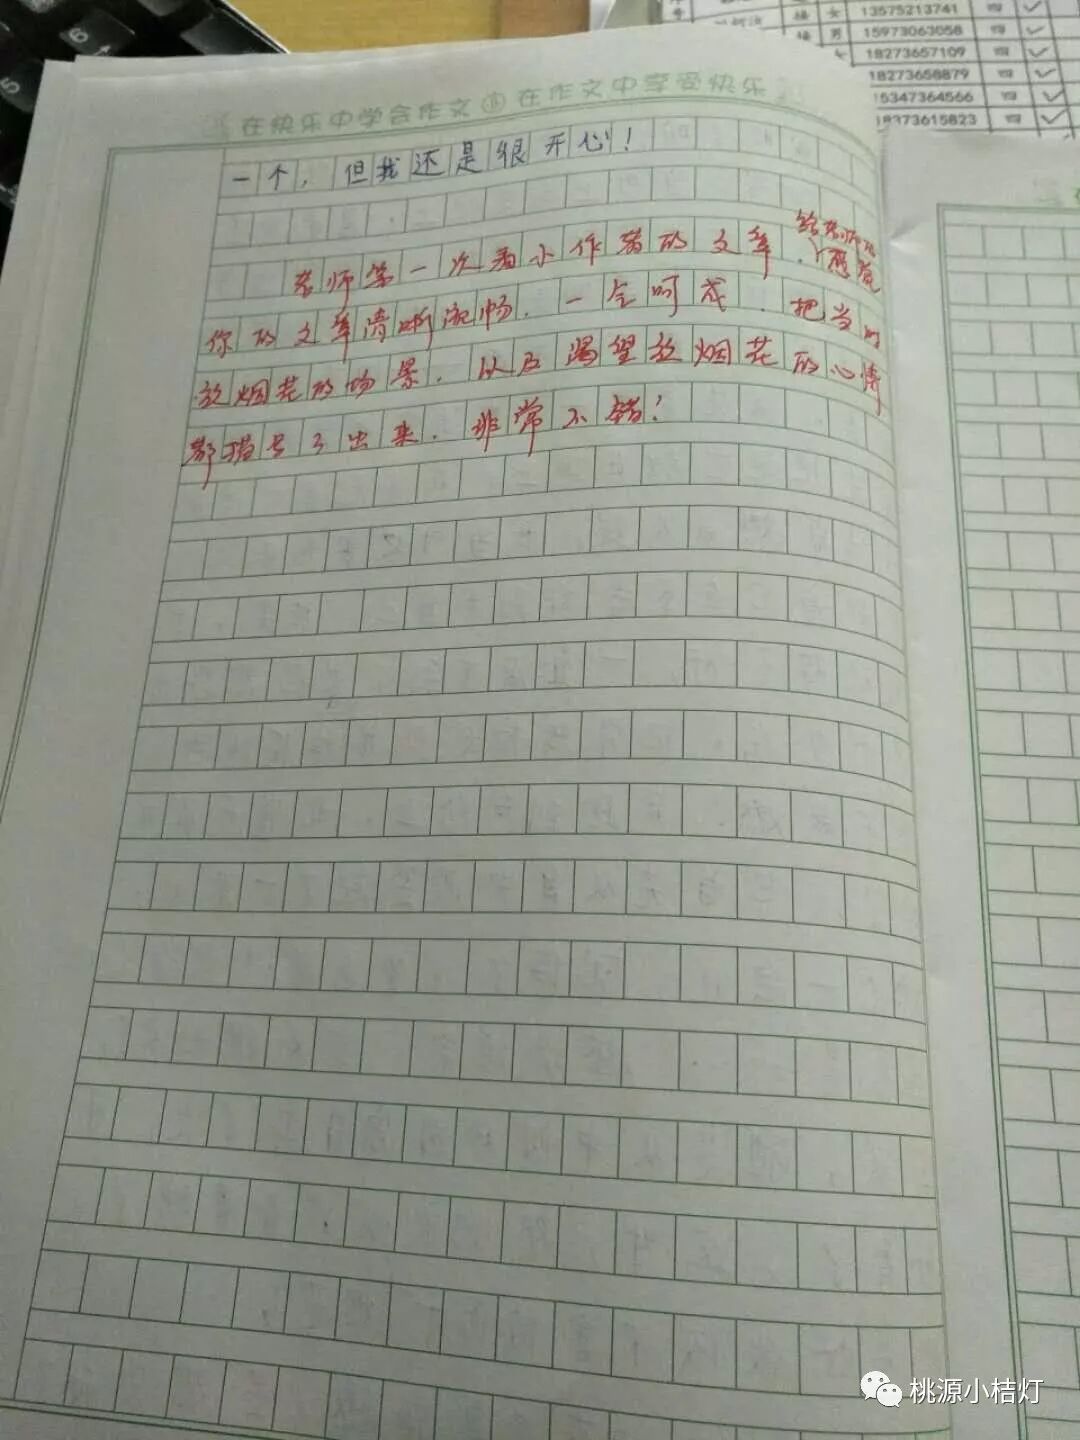 女 13575213741 四 ✓
男 15973063058 四 ✓
18273657109 四 ✓
18273658879 四 ✓
15347364566 四 ✓
18373615823 四 ✓
在快乐中学会作文 在作文中享受快乐
一个，但我还是很开心！
老师第一次看小作者的文章，给老师的感觉
你的文章清晰流畅，一气呵成，把当时
放烟花的场景，以及渴望放烟花的心情
都描写了出来，非常不错！
桃源小桔灯